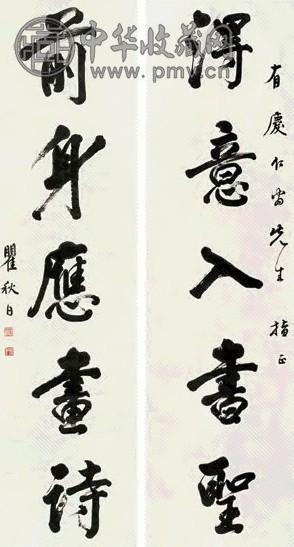 中华收藏网
www.pmv.cn
有慶仁先生 指正
得意入書聖
前身應畫詩
瞿秋白